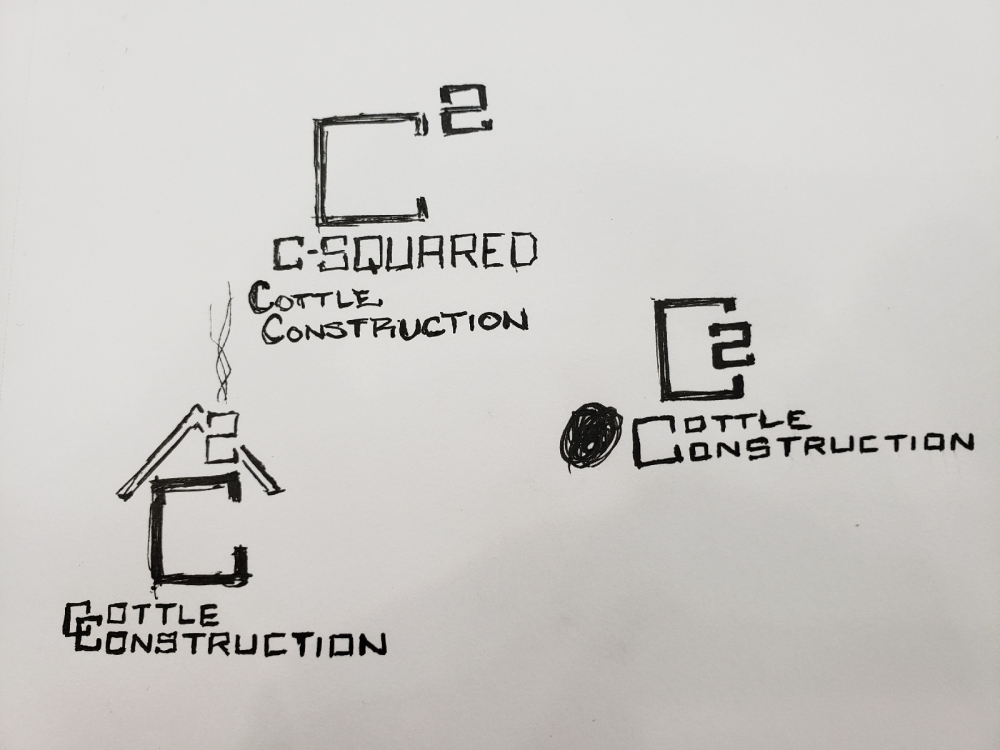 C²
C-SQUARED
COTTLE
CONSTRUCTION
C2
COTTLE
CONSTRUCTION
2
C
COTTLE
CONSTRUCTION